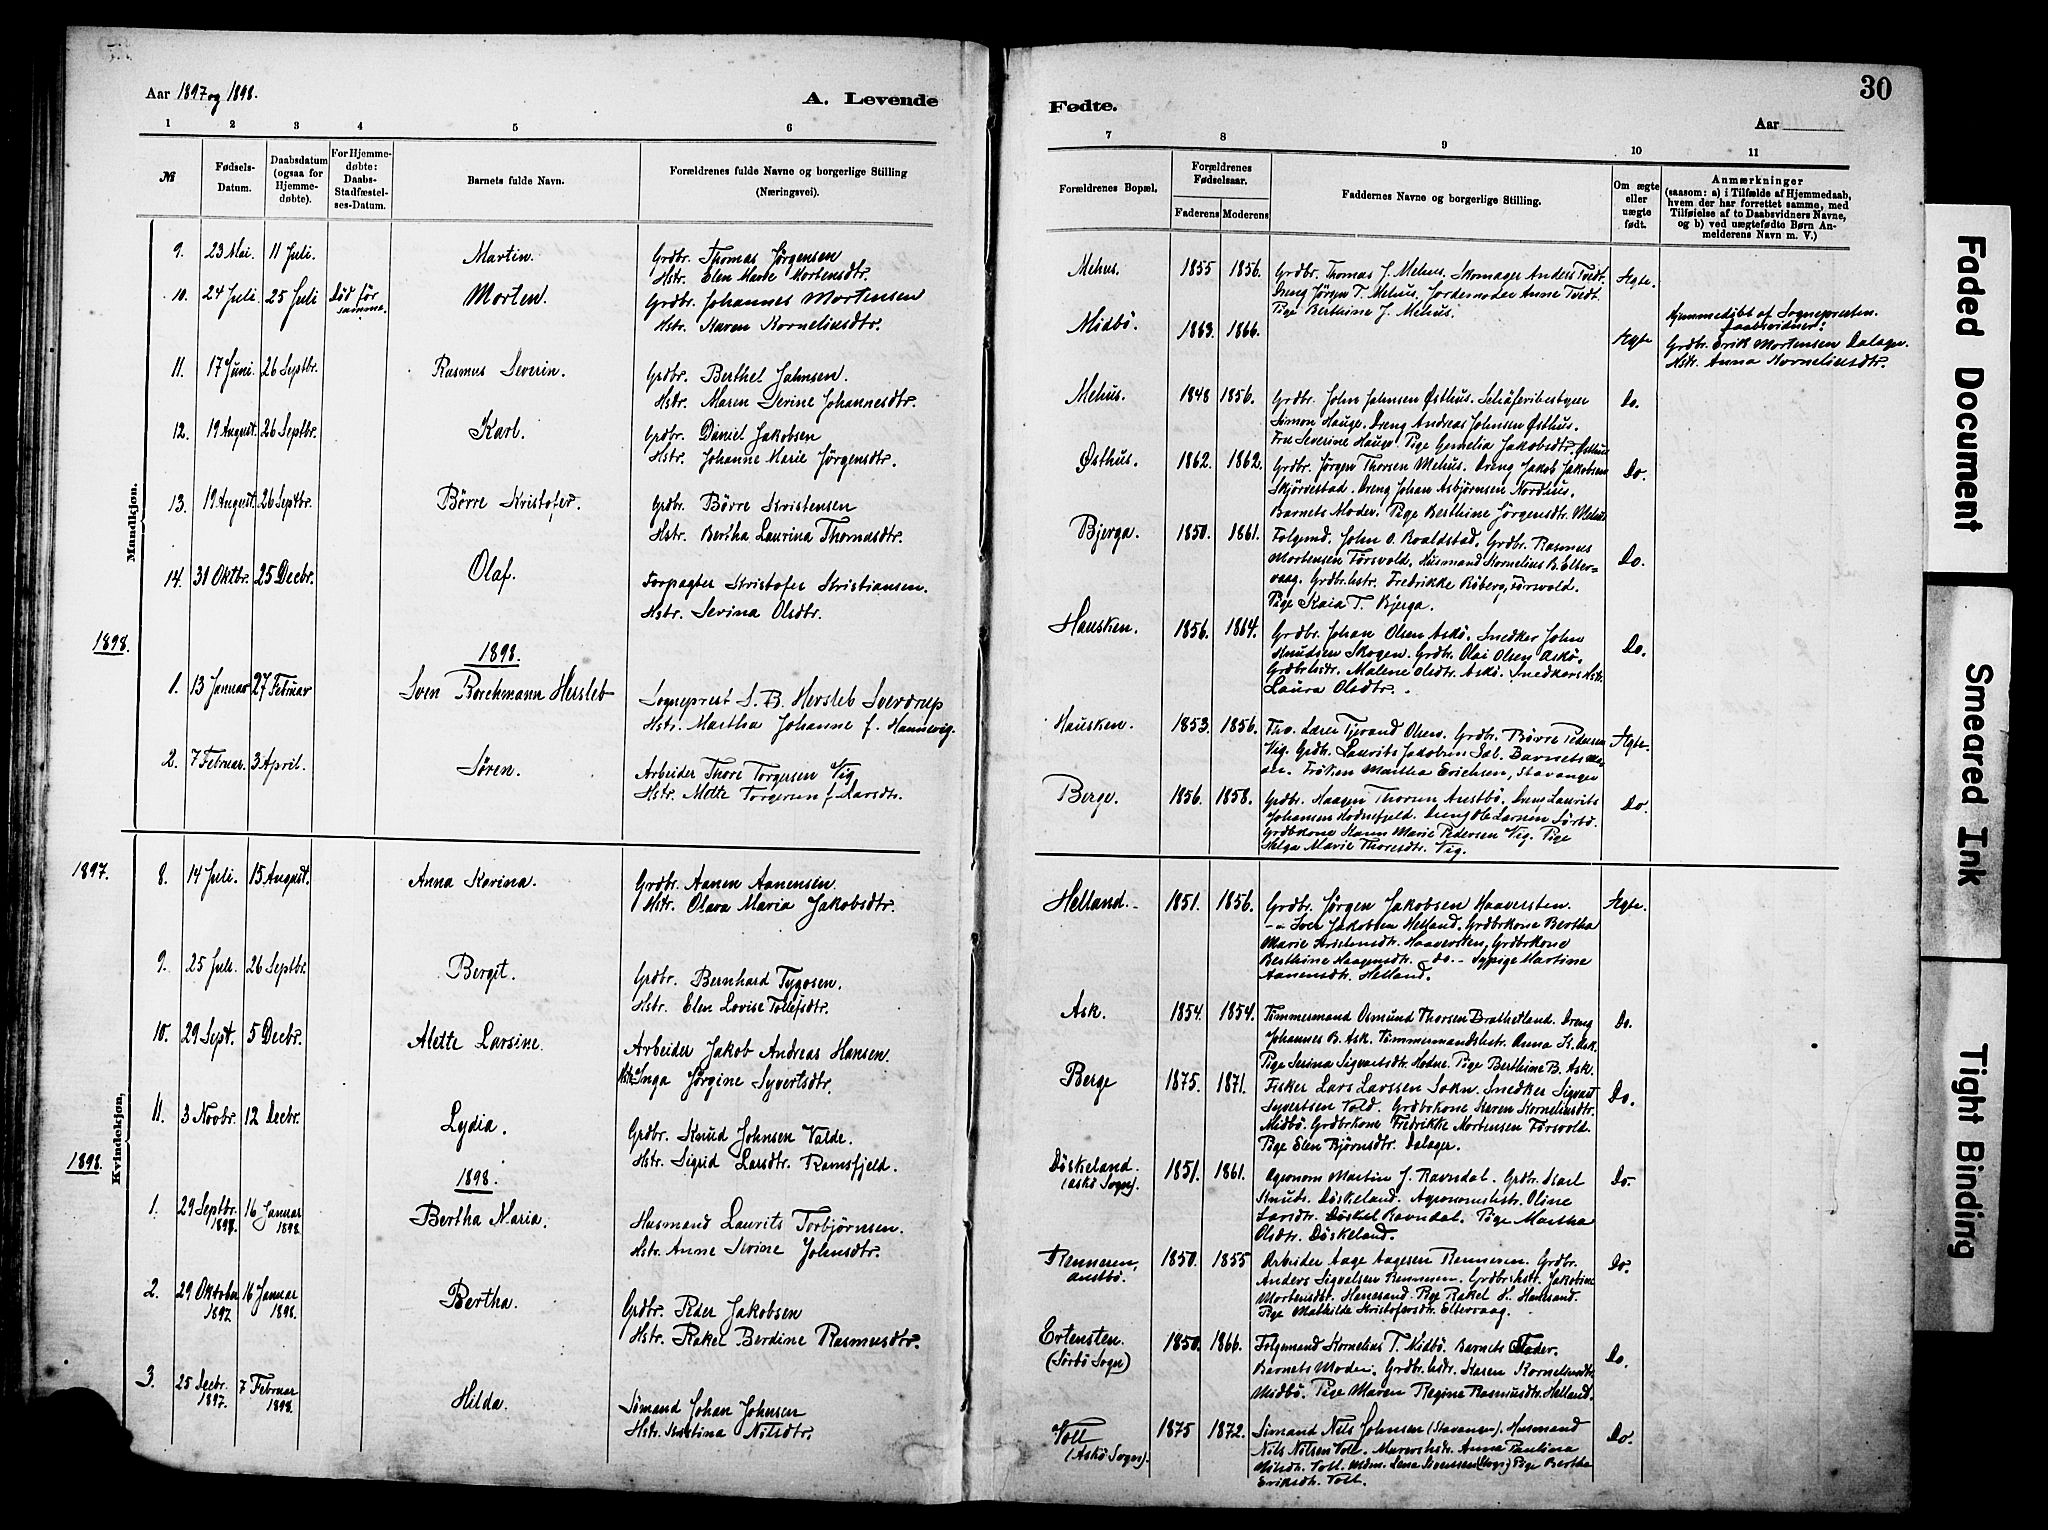 30
Aar 1897 og 1898.
A. Levende
Fødte.
Aar
1 2 3 4 5 6
7 8 9 10 11
№
Fødsels-
Datum.
Daabsdatum
(ogsaa for
Hjemme-
døbte).
For Hjemme-
døbte:
Daabs-
Stadfæstel-
ses-Datum.
Barnets fulde Navn.
Forældrenes fulde Navne og borgerlige Stilling
(Næringsvei).
Forældrenes Bopæl.
Forældrenes
Fødselsaar.
Faderens Moderens
Faddernes Navne og borgerlige Stilling.
Om ægte
eller
uægte
født.
Anmærkninger
(saasom: a) i Tilfælde af Hjemmedaab,
hvem der har forrettet samme, med
Tilføielse af to Daabsvidners Navne,
og b) ved uægtefødte Børn An-
melderens Navn m. V.)
Mandkjøn.
9. 23 Mai. 11 Juli. Martin.
Grdbr. Thomas Jørgensen
Hstr. Elen Marie Mortensdtr.
Mehus. 1855 1856.
Grdbr. Thomas J. Mehus. Skomager Anders Tvedt.
Dreng Jørgen T. Mehus. Jordemoder Anne Tvedt.
Pige Berthine J. Mehus.
Ægte.
10. 24 Juli 25 Juli Død før
samme. Morten.
Grdbr. Johannes Mortensen
Hstr. Karen Korneliusdtr.
Midbö. 1863. 1866. Ægte
Hjemmedöbt af Sognepresten.
Daabsvidner:
Grdbr. Erik Mortensen Dalager.
Hstr. Anna Korneliusdtr.
11. 17 Juni. 26 Septbr. Rasmus Severin.
Grdbr. Berthel Johnsen.
Hstr. Maren Serine Johannesdtr.
Mehus. 1848 1856.
Grdbr. John Johnsen Østhus. Schäferibestyrer
Simon Hauge. Dreng Andreas Johnsen Østhus.
Fru Severine Hauge. Pige Gemelia Jakobsdtr. Østhus
Do.
12. 19 August. 26 Septbr. Karl.
Grdbr. Daniel Jakobsen
Hstr. Johanne Marie Jørgensdtr.
Østhus. 1862. 1862.
Grdbr. Jørgen Thorsen Mehus. Dreng Jakob Jakobsen
Skjörvestad. Dreng Johan Asbjörnsen Nordhus.
Barnets Moder. Pige Berthine Jörgensdtr. Mehus
Do.
13. 19 August. 26 Septbr. Börre Kristofer.
Grdbr. Börre Kristensen
Hstr. Bertha Laurina Thomasdtr.
Bjerga. 1850. 1861.
Folgmd. John O. Boaldstad. Grdbr. Rasmus
Mortensen Försvold. Husmand Kornelius B. Elter=
vaag. Grdbr.hstr. Fredrikke Böberg, Försvold.
Pige Kaia T. Bjerga.
Do.
14. 31 Oktbr. 25 Decbr. Olaf.
Forpagter Kristofer Kristiansen.
Hstr. Sevina Olsdtr.
Hausken. 1856. 1864.
Grdbr. Johan Olsen Askö. Snedker John
Knudsen Skogen. Grdbr. Olai Olsen Askö.
Grdbrhstr. Malene Olsdtr. Askö. Snedkers Hstr.
Laura Olsdtr.
Do.
1898. 1898.
1. 13 Januar 27 Februar Sven Borchmann Hersleb
Sogneprest S. B. Hersleb Sverdrup
Hstr. Martha Johanne f. Hannevig.
Hausken. 1853. 1856.
Fhv. Lærer Tjerand Olsen. Grdbr. Börre Pedersen
Vig. Grdbr. Laurits Jakobsen Dal. Barnets
Frøken Martha Erichsen, Stavanger
Ægte.
2. 7 Februar. 3 April. Sören.
Arbeider Thore Torgersen Vig
Hstr. Mette Torgersen f. Larsdtr.
Berge. 1856. 1858.
Grdbr. Haagen Thorsen Austbö. Dreng Laurits
Johansen Hodnefjeld. Dreng Ole Larsen Sörbö.
Grdbrkone Hanna Marie Pedersen Vig. Pige
Helga Marie Thoresdtr. Vig.
Do
Kvindekjøn.
1897. 8. 14 Juli. 15 August. Anna Karina.
Grdbr. Aanen Aanensen.
Hstr. Olava Maria Jakobsdtr.
Helland. 1851. 1856.
Grdbr. Jørgen Jakobsen Haaversten.
-"- Iver Jakobsen Helland. Grdbrkone Bertha
Marie Kristensdtr. Haaversten, Grdbrkone
Berthine Haagensdtr. do. - Sypige Martine
Aanensdtr. Helland.
Ægte.
9. 25 Juli. 26 Septbr. Bergit.
Grdbr. Bernhard Tygosen.
Hstr. Elen Lovise Tollefsdtr.
Ask. 1854. 1854.
Tömmermand Osmund Thorsen Brathetland. Dreng
Johannes B. Ask. Tömmermandshstr. Anna K. Ask.
Pige Serina Sigvartsdtr. Hodne. Pige Berthine B. Ask.
Do.
10. 29 Sept. 5 Decbr. Alette Larsine.
Arbeider Jakob Andreas Hansen
Hstr. Inga Jörgine Syvertsdtr.
Berge 1875. 1871.
Fisker Lars Larssen Sokn. Snedker Sigvart
Syvertsen Vold. Grdbrkone Karen Korneliusdtr.
Midbö. Grdbrkone Fredrikke Mortensen Försvold.
Pige Elen Bjørnsdtr. Dalager.
Do.
11. 3 Novbr. 12 Decbr. Lydia.
Grdbr. Knud Johnsen Valde.
Hstr. Sigrid Larsdtr. Ramsfjeld.
Döskeland.
(Askö Sogn). 1851. 1861.
Agronom Martin J. Ravndal. Grdbr. Karl
Knuds. Döskeland. Agronomhstr. Oline
Larsdtr. Döskel. Ravndal. Pige Martha
Olsdtr. Döskeland.
Do.
1898. 1898.
1. 29 Septbr.
1897. 16 Januar
1898. Bertha Maria.
Husmand Laurits Torbjørnsen.
Hstr. Anne Sevine Johnsdtr.
Renneren,
Austbö. 1850. 1855
Arbeider Aage Aagesen Renneren. Grdbr.
Anders Sigvalsen Renneren. Grdbrshstr. Jakobine
Mortensdtr. Hanesand. Pige Rakel H. Hanesand.
Pige Mathilde Kristofersdtr. Eltervaag.
Do.
2. 29 Oktober
1897 16 Januar
1898. Bertha.
Grdbr. Peder Jakobsen
Hstr. Rakel Berdine Rasmusdtr.
Ertensten.
(Sörbö Sogn) 1850. 1866.
Folgemand Kornelius T. Midbö. Barnets Fader.
Barnets Moder. Grdbr. hstr. Karen Korneliusdtr.
Midbö. Pige Maren Regine Rasmusdtr. Helland.
Do.
3. 25 Decbr.
1897. 7 Februar
1898. Hilda.
Sømand Johan Johnsen
Hstr. Kristina Nilsdtr.
Voll
(Askö Sogn). 1875 1872.
Sømand Nils Johnsen (Stavanger). Husmand
Nils Nilsen Voll. Murershstr. Anne Paulina
Nilsdtr. Voll. Mdm. Lena Sivensen Pige Bertha
Eriksdtr. Voll.
Do.
Faded Document
Smeared Ink
Tight Binding